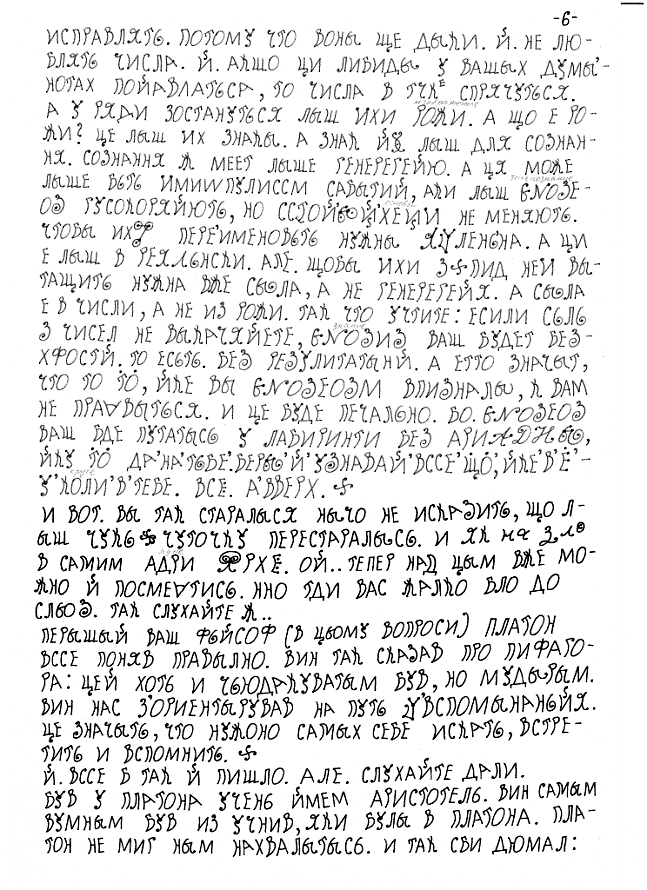 -6-
ИСПРАВЛЯТЬ. ПОТОМУ ЧТО ВОНЫ ЩЕ ДЫКИ. Й. НЕ ЛЮ-
БЛЯТЬ ЧИСЛА. Й. АКЩО ЦИ ЛИВИДЫ У ВАШЫХ ДУМЫ-
НОТАХ ПОЙАВЛАТЬСА, ТО ЧИСЛА В СПРЯЧУТЬСЯ.
А У РЯДИ ЗОСТАНУТЬСЯ ЛЫШ ИХИ РОЖИ. А ЩО Е РО-
ЖИ? ЦЕ ЛЫШ ИХ ЗНАКЫ. А ЗНАК ЛЫШ ДЛЯ СОЗНАН-
НЯ. СОЗНАННЯ Ж МЕЕТ ЛЫШЕ ГЕНЕРЕГЕЙЮ. А ЦЯ МОЖЕ
ЛЫШЕ БЫТЬ САБЫТИЙ, АКИ ЛЫШ
НО НЕ МЕНЯЮТЬ.
ЧТОБЫ ИХ ПЕРЕИМЕНОВЫТЬ НУЖНЫ А ЦИ
Е ЛЫШ В АЛЕ. ЩОБЫ ИХИ ПИД НЕЙ ВЫ-
ТАЩИТЬ НУЖНА ВЖЕ СЫЛА, А НЕ ГЕНЕРЕГЕЙЯ. А СЫЛА
Е В ЧИСЛИ, А НЕ ИЗ РОЖИ. ТАК ЧТО УЧТИТЕ: ЕСИЛИ СЫЛЬ
З ЧИСЕЛ НЕ ВЫКАЧЯЙЕТЕ, ВАШ БУДЕТ БЕЗ-
ХРОСТИЙ. ТО ЕСЬТЬ. БЕЗ РЕЗУЛИТАТЫНИЙ. А ЕТТО ЗНАЧЫТ,
ЧТО ТО ТО, ЙКЕ ВЫ ВПИЗНАЛЫ, Ж ВАМ
НЕ ПРАVВЫТЬСЯ. И ЦЕ БУДЕ ПЕЧАЛЬНО. БО.
ВАШ БДЕ ПУТАТЫСЬ У ЛАВИРИНТИ БЕЗ АРИАДНЫ,
ЙКУ ТО ДА'НА'ТЕБЕ'.ВЕРЬЮ'Й'УЗНАВАЙ'ВССЕ'ЩО, ЙКЕ'В'Е'-
У'КОЛИ'В'ТЕБЕ. ВСЕ. А'ВВЕРХ.
И ВОТ. ВЫ ТАК СТАРАЛЫСЯ НЫЧО НЕ ИСКАЗИТЬ, ЩО Л-
ЫШ ЧУКЬ ЧУТОЧКУ ПЕРЕСТАРАЛЫСЬ. И ЯК НА ЗЛО
В САМИМ АДРИ ОЙ.. ТЕПЕР НАД ЦЫМ ВЖЕ МО-
ЖНО Й ПОСМЕVТИСЬ. ННО ТДИ ВАС ЖАЛКО БЛО ДО
СЛЬОЗ. ТАК СЛУХАЙТЕ Ж..
ПЕРЫШЫЙ ВАШ ФЫЙСОФ (В ЦЬОМУ ВОПРОСИ) ПЛАТОН
ВССЕ ПОНЯВ ПРАВЫЛНО. ВИН ТАК СКАЗАВ ПРО ПИФАГО-
РА: ЦЕЙ ХОТЬ И ЧЬЮДАКУВАТЫМ БУВ, НО МУДЫРЫМ.
ВИН НАС З'ОРИЕНТЫРУВАВ НА ПУТЬ
ЦЕ ЗНАЧЫТЬ, ЧТО НУЖОНО САМЫХ СЕБЕ ИСКАТЬ, ВСТРЕ-
ТИТЬ И ВСПОМНИТЬ.
Й. ВССЕ Б ТАК Й ПИШЛО. АЛЕ. СЛУХАЙТЕ ДАЛИ.
БУВ У ПЛАТОНА УЧЕНЬ ЙМЕМ АРИСТОТЕЛЬ. ВИН САМЫМ
ВУМНЫМ БУВ ИЗ УЧНИВ, ЯКИ БУЛЫ В ПЛАТОНА. ПЛА-
ТОН НЕ МИГ НЫМ НАХВАЛЫТЫСЬ. И ТАК СВИ ДЮМАЛ: